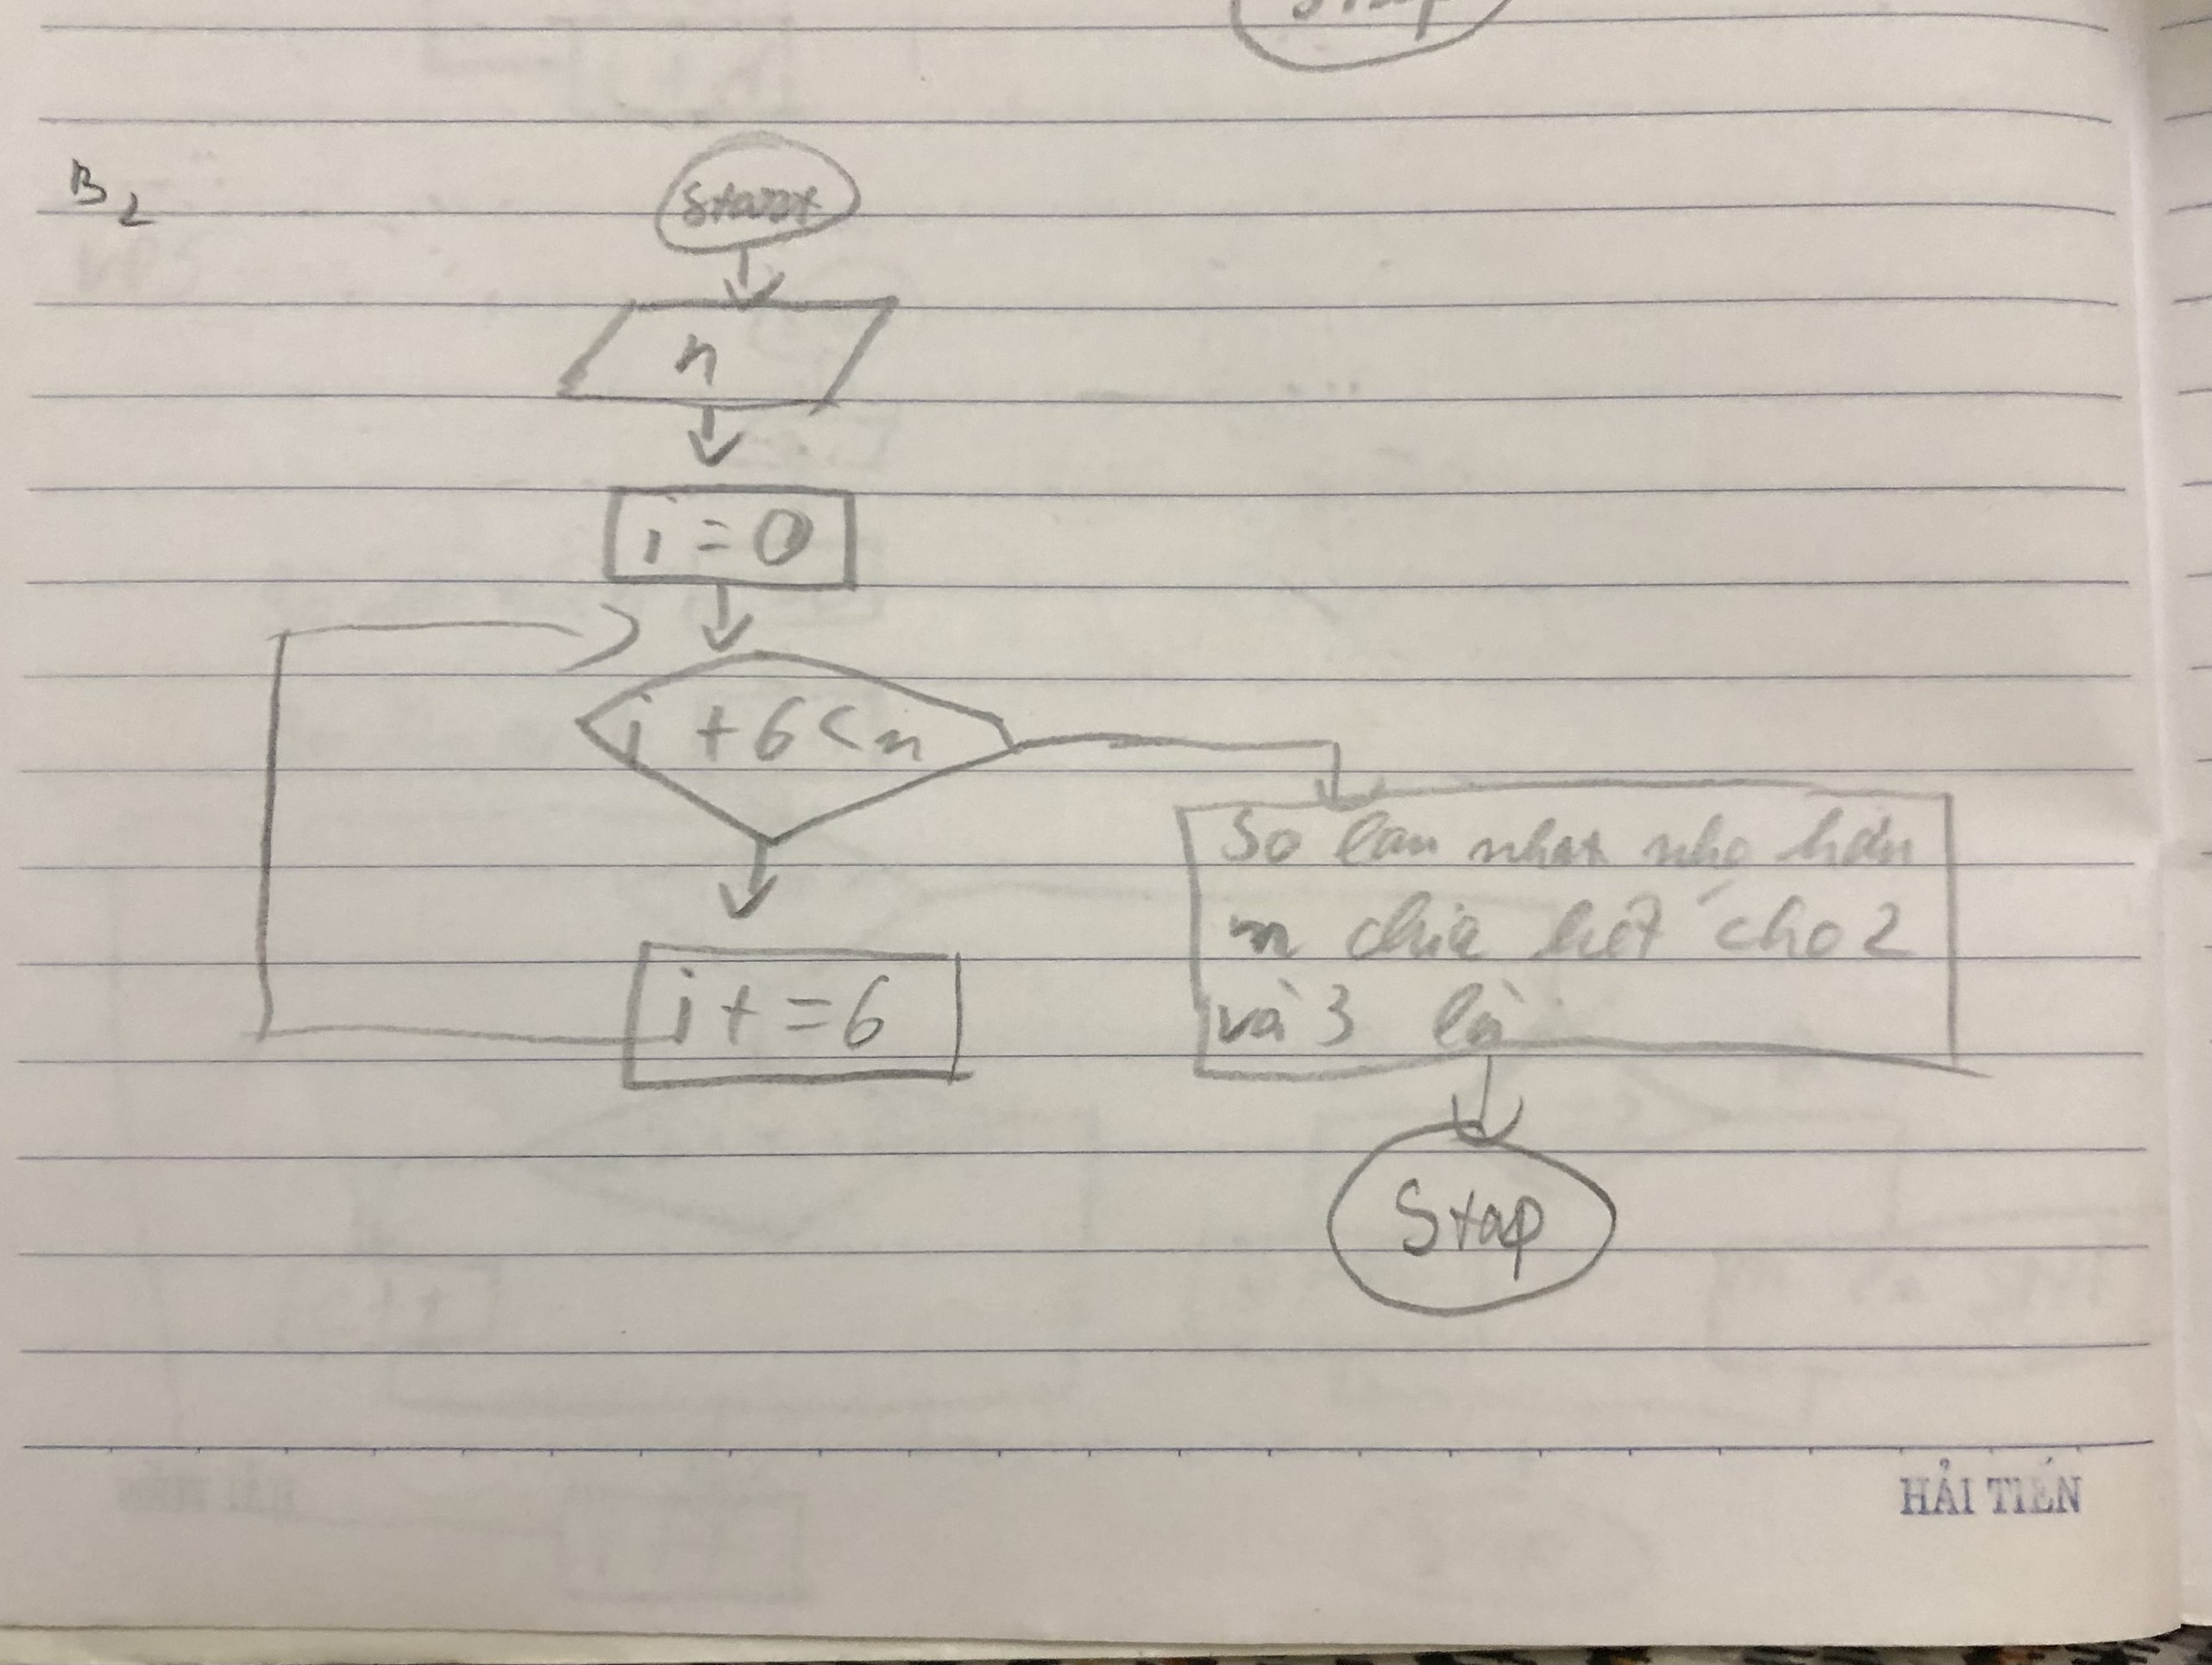 Stop
B2
Start
n
i = 0
i + 6 < n
So lon nhat nhỏ hơn
n chia hết cho 2
và 3 là
i + = 6
Stop
HẢI TIẾN